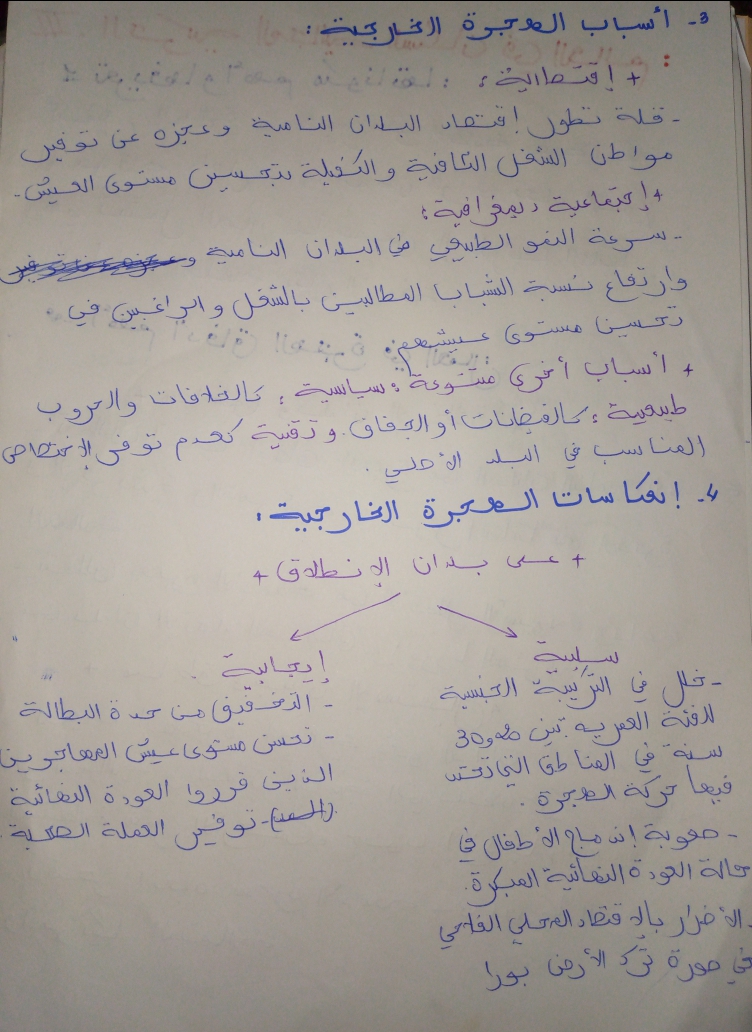 3- أسباب الهجرة الخارجية :
+ إقتصادية :
- قلة تطور إقتصاد البلدان النامية وعجزه عن توفير
مواطن الشغل الكافية والكفيلة بتحسين مستوى العيش.
+ إجتماعية ديمغرافية :
- سرعة النمو الطبيعي في البلدان النامية
وارتفاع نسبة الشباب المطالبين بالشغل والراغبين في
تحسين مستوى عيشهم.
+ أسباب أخرى متنوعة : سياسية : كالخلافات والحروب
طبيعية : كالفيضانات أو الجفاف. وتقنية كعدم توفر الإختصاص
المناسب في البلد الأصلي.
4- إنعكاسات الهجرة الخارجية :
+ على بلدان الإنطلاق +
سلبية
- خلل في التركيبة الجنسية
للفئة العمرية بين و 30
سنة في المناطق التي تحتد
فيها حركة الهجرة.
- صعوبة إندماج الأطفال في
حالة العودة النهائية المبكرة.
- الأضرار بالإقتصاد المحلي الفلاحي
في صورة ترك الأرض بورا
إيجابية
- التخفيف من حدة البطالة
- تحسن مستوى عيش المهاجرين
الذين قرروا العودة النهائية
- توفير العملة الصعبة